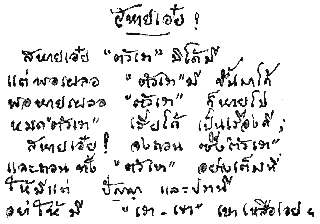 สหายเอ๋ย !
สหายเอ๋ย "ตัวเรา" มิได้มี
แต่พอเผลอ "ตัวเรา" มี ขึ้นมาได้
พอหายเผลอ "ตัวเรา" ก็หายไป
หมด "ตัวเรา" เสียได้ เป็นเรื่องดี ;
สหายเอ๋ย ! จงถอน ซึ่ง "ตัวเรา"
และถอน ทั้ง "ตัวเขา" อย่างเต็มที่
ให้มีแต่ ปัญญา และปรานี
อย่าให้มี "เรา-เขา" เบาเหลือเอย ฯ